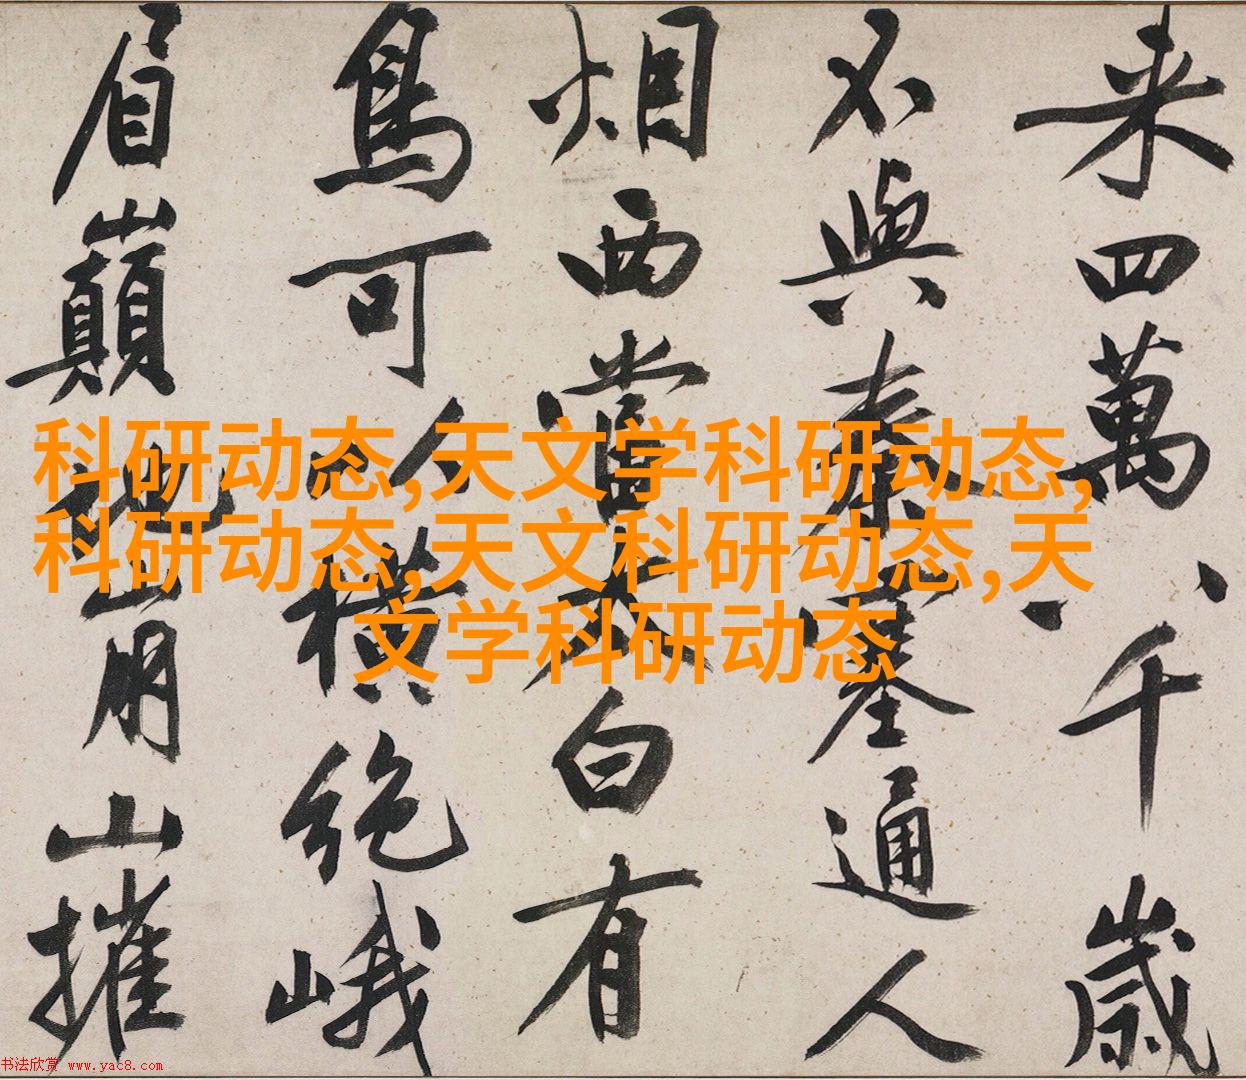 来四萬八千歳
不與秦塞通人
烟西當太白有
鳥可以横絶峨
眉巔地崩山摧
科研动态,天文学科研动态,
科研动态,天文科研动态,天
文学科研动态
书法欣赏 www.yac8.com